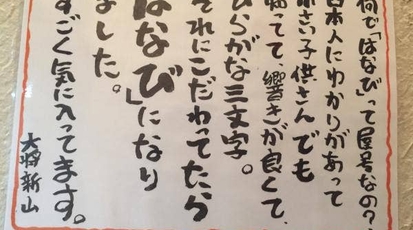 何で「はなび」って屋号なの？
日本人にわかりがあって
小さい子供さんでも
知ってて、響きが良くて、
ひらがな三文字。
それにこだわってたら
はなび」になり
ました。
すごく気に入ってます。
大将 新山